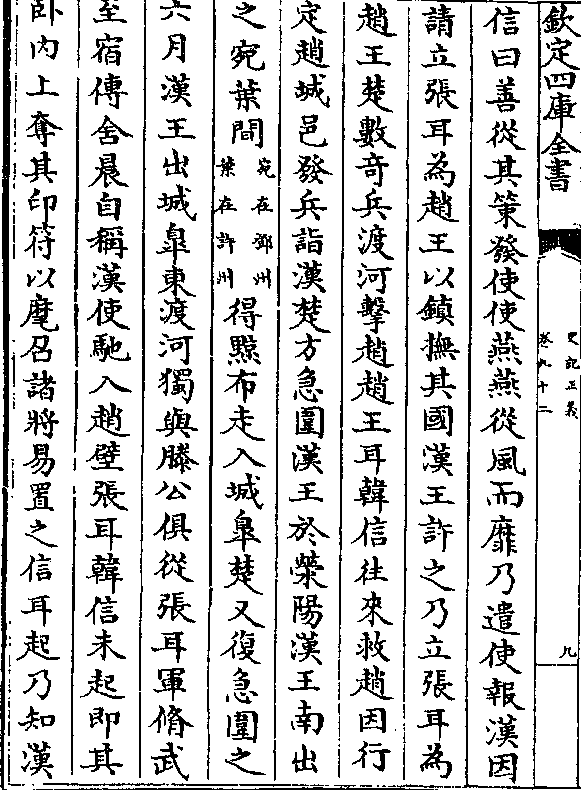 欽定四庫全書
史記正義
卷九十二
九
信曰善從其策發使使燕燕從風而靡乃遣使報漢因
請立張耳為趙王以鎮撫其國漢王許之乃立張耳為
趙王楚數奇兵渡河擊趙趙王耳韓信往來救趙因行
定趙城邑發兵詣漢楚方急圍漢王於滎陽漢王南出
之宛葉間宛在鄧州葉在許州得黥布走入城臯楚又復急圍之
六月漢王出城臯東渡河獨與滕公俱從張耳軍脩武
至宿傳舍晨自稱漢使馳入趙壁張耳韓信未起即其
卧内上奪其印符以麾召諸將易置之信耳起乃知漢